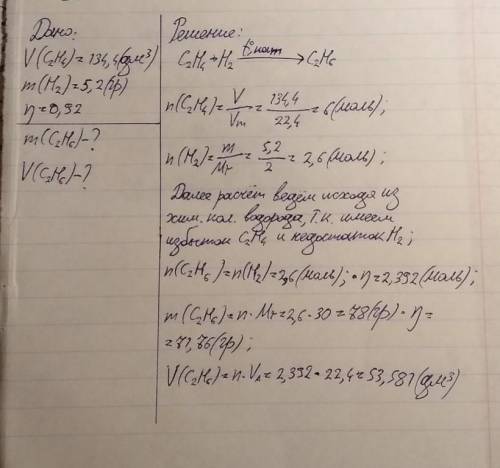 Дано:
V(C₂H₄)=134,4(дм³)
m(H₂)=5,2(гр)
η=0,92
m(C₂H₆)-?
V(C₂H₆)-?
Решение:
C₂H₄+H₂ t°,кат → C₂H₆
n(C₂H₄)=V/Vm=134,4/22,4=6(моль);
n(H₂)=m/Mr=5,2/2=2,6(моль);
Далее расчёт ведём исходя из
хим. кол. водорода, т.к. имеем
избыток C₂H₄ и недостаток H₂;
n(C₂H₆)=n(H₂)=2,6(моль); · η=2,392(моль);
m(C₂H₆)=n·Mr=2,6·30=78(гр)·η=
=71,76(гр);
V(C₂H₆)=n·Vₙ=2,392·22,4=53,581(дм³)